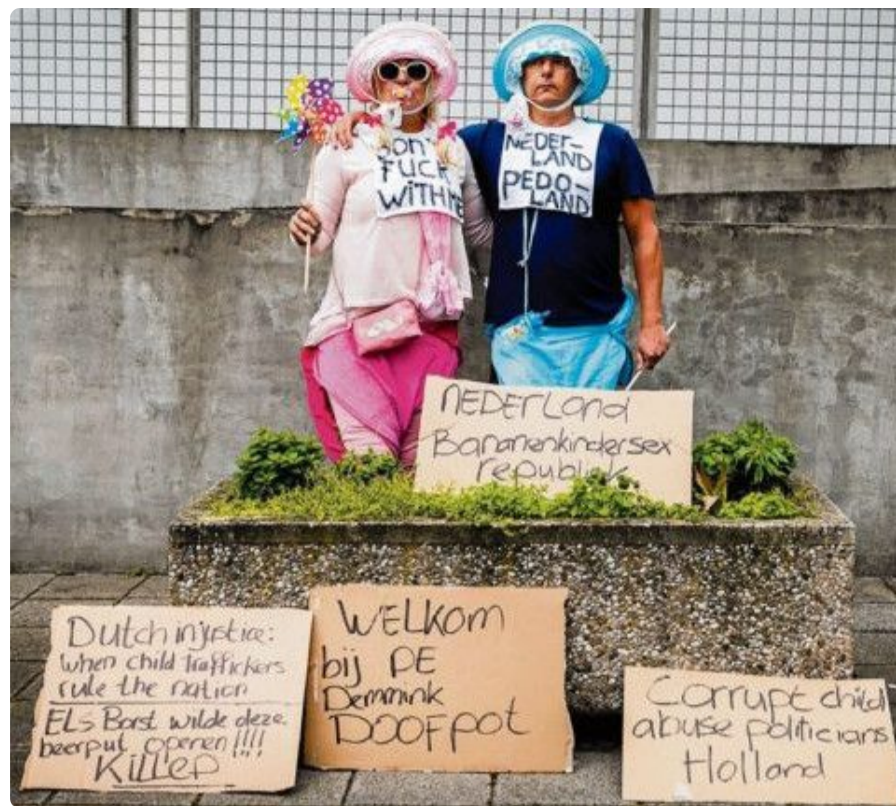 DON'T
FUCK
WITH ME
NEDER-
LAND
PEDO-
LAND
NEDERLand
Bananenkindersex
republiek
Dutch injustice:
when child traffickers
rule the nation
ELs Borst wilde deze
beerput openen !!!!
KILLED
WELKOM
bij DE
Demmink
DOOFpot
Corrupt child
abuse politicians
Holland